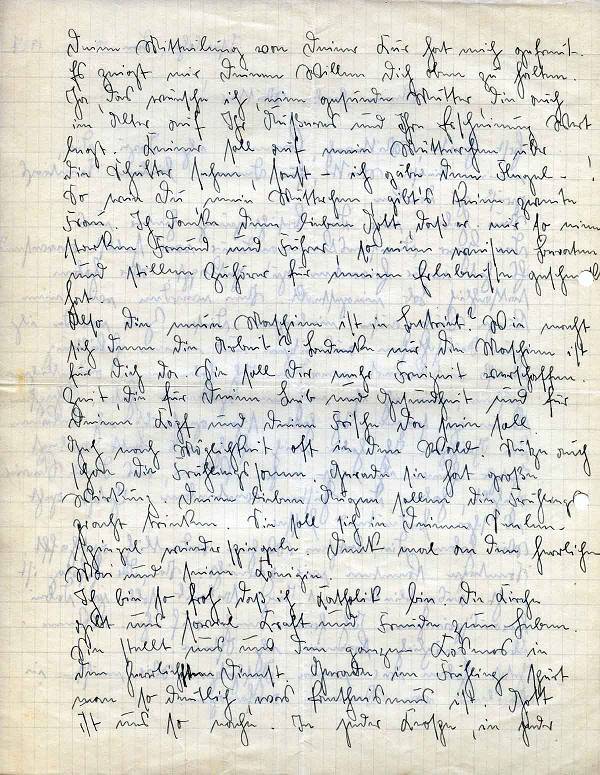 Deine Mitteilung von Deiner Kur hat mich gefreut.
Es zeigt mir Deinen Willen Dich oben zu halten.
Ja das wünsche ich, eine gesunde Mutter die auch
im Alter auf Ihr Äußeres und Ihre Erscheinung Wert
legt. Keiner soll auf mein Mütterchen über
die Schulter sehen, sonst – ich gäbe dem Flegel – !
So wie Du mein Mütterchen, gibt's keine zweite
Frau. Ich danke dem lieben Gott, daß er mir so einen
starken Freund und Führer, so einen weisen Berater
und stillen Zuhörer für meine Erlebnisse geschenkt
hat.
Also die neue Maschine ist in Betrieb? Wie macht
sich denn die Arbeit? Bedenke nur die Maschine ist
für Dich da. Sie soll Dir mehr Freizeit verschaffen.
Zeit, die für Deinen Leib und Gesundheit und für
Deinen Kopf und Deine Frische da sein soll.
Geh nach Möglichkeit oft in den Wald. Nütze auch
schon die Frühlingssonne. Gerade sie hat große
Wirkung. Deine lieben Augen sollen die Frühlings-
pracht trinken. Sie soll sich in Deinem Seelen-
spiegel wiederspiegeln. Denk mal an den herrlichen
Mai und seine Königin.
Ich bin so froh, daß ich Katholik bin. Die Kirche
gibt uns soviel Kraft und Freuden zum Leben.
Sie stellt uns und den ganzen Kosmos in
den herrlichsten Dienst. Gerade im Frühling spürt
man so deutlich was ist. Gott
ist uns so nahe. In jeder Knospe, in jeder